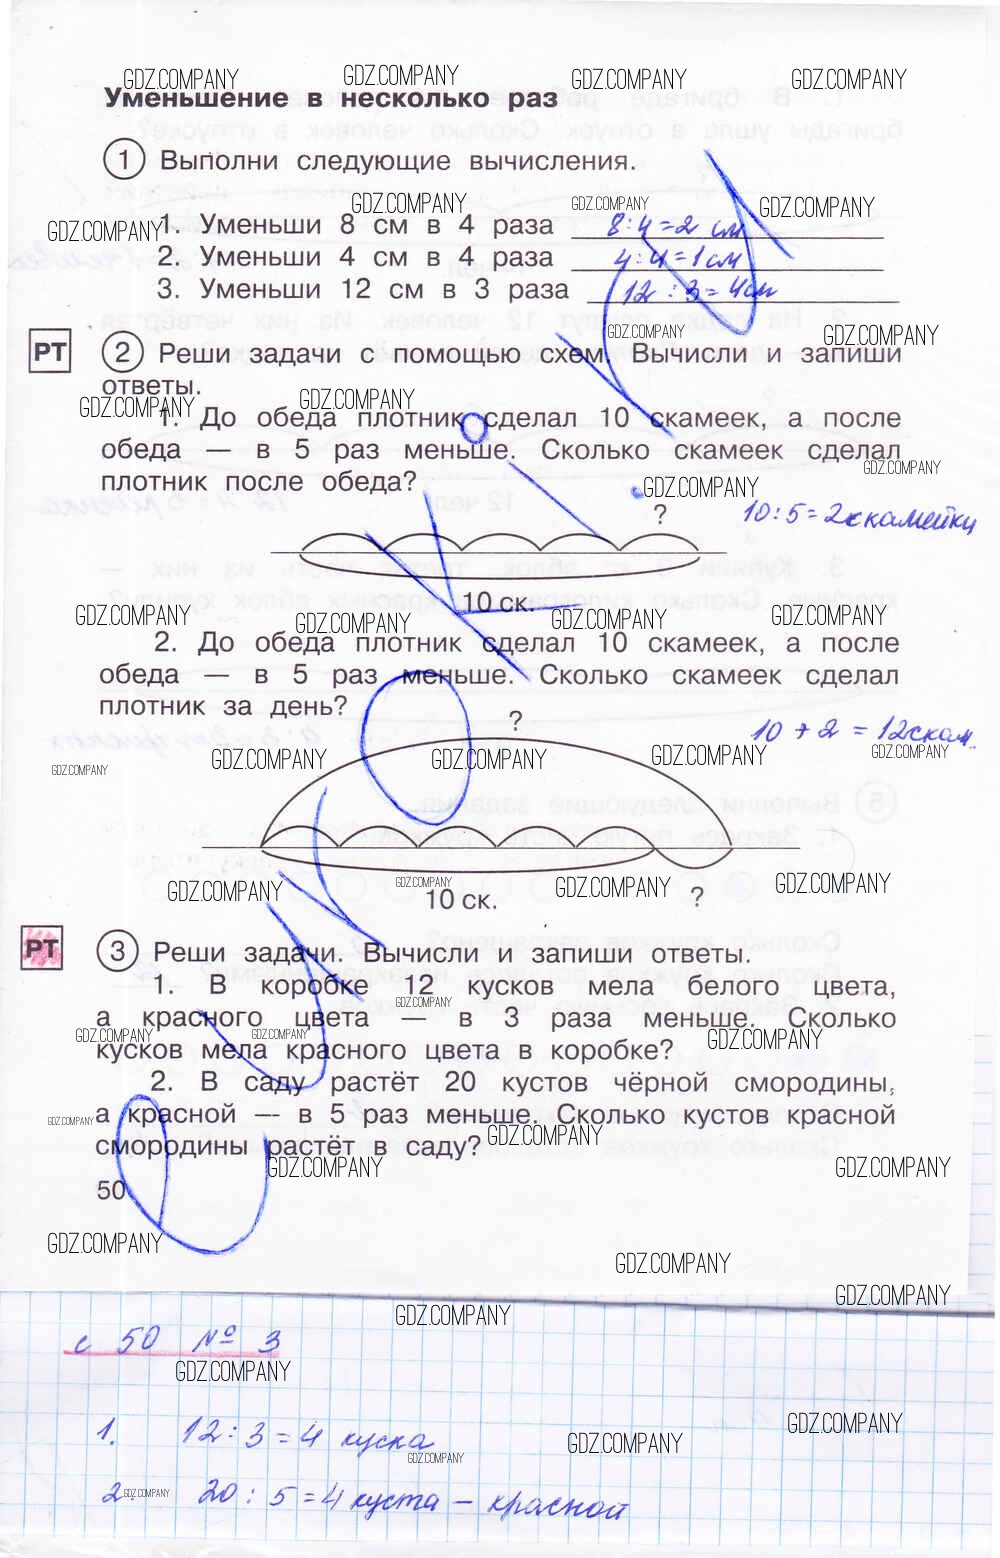 GDZ.COMPANY GDZ.COMPANY GDZ.COMPANY GDZ.COMPANY
Уменьшение в несколько раз
1 Выполни следующие вычисления.
GDZ.COMPANY GDZ.COMPANY GDZ.COMPANY GDZ.COMPANY
1. Уменьши 8 см в 4 раза 8:4=2 см
2. Уменьши 4 см в 4 раза 4:4=1см
3. Уменьши 12 см в 3 раза 12:3=4см
GDZ.COMPANY GDZ.COMPANY
РТ 2 Реши задачи с помощью схем. Вычисли и запиши
ответы.
GDZ.COMPANY GDZ.COMPANY
1. До обеда плотник сделал 10 скамеек, а после
обеда — в 5 раз меньше. Сколько скамеек сделал
GDZ.COMPANY
плотник после обеда?
GDZ.COMPANY
? 10:5=2скамейки
10 ск.
GDZ.COMPANY GDZ.COMPANY GDZ.COMPANY GDZ.COMPANY
2. До обеда плотник сделал 10 скамеек, а после
обеда — в 5 раз меньше. Сколько скамеек сделал
плотник за день?
? 10+2=12скам.
GDZ.COMPANY GDZ.COMPANY GDZ.COMPANY GDZ.COMPANY GDZ.COMPANY
GDZ.COMPANY GDZ.COMPANY GDZ.COMPANY GDZ.COMPANY
10 ск. ?
РТ 3 Реши задачи. Вычисли и запиши ответы.
1. В коробке 12 кусков мела белого цвета,
GDZ.COMPANY
а красного цвета — в 3 раза меньше. Сколько
GDZ.COMPANY GDZ.COMPANY GDZ.COMPANY
кусков мела красного цвета в коробке?
2. В саду растёт 20 кустов чёрной смородины,
а красной — в 5 раз меньше. Сколько кустов красной
GDZ.COMPANY GDZ.COMPANY
смородины растёт в саду?
GDZ.COMPANY GDZ.COMPANY
50
GDZ.COMPANY GDZ.COMPANY
GDZ.COMPANY
GDZ.COMPANY
с 50 № 3
GDZ.COMPANY
GDZ.COMPANY
1. 12:3=4 куска
GDZ.COMPANY GDZ.COMPANY
2. GDZ.COMPANY 20:5=4 куста – красной